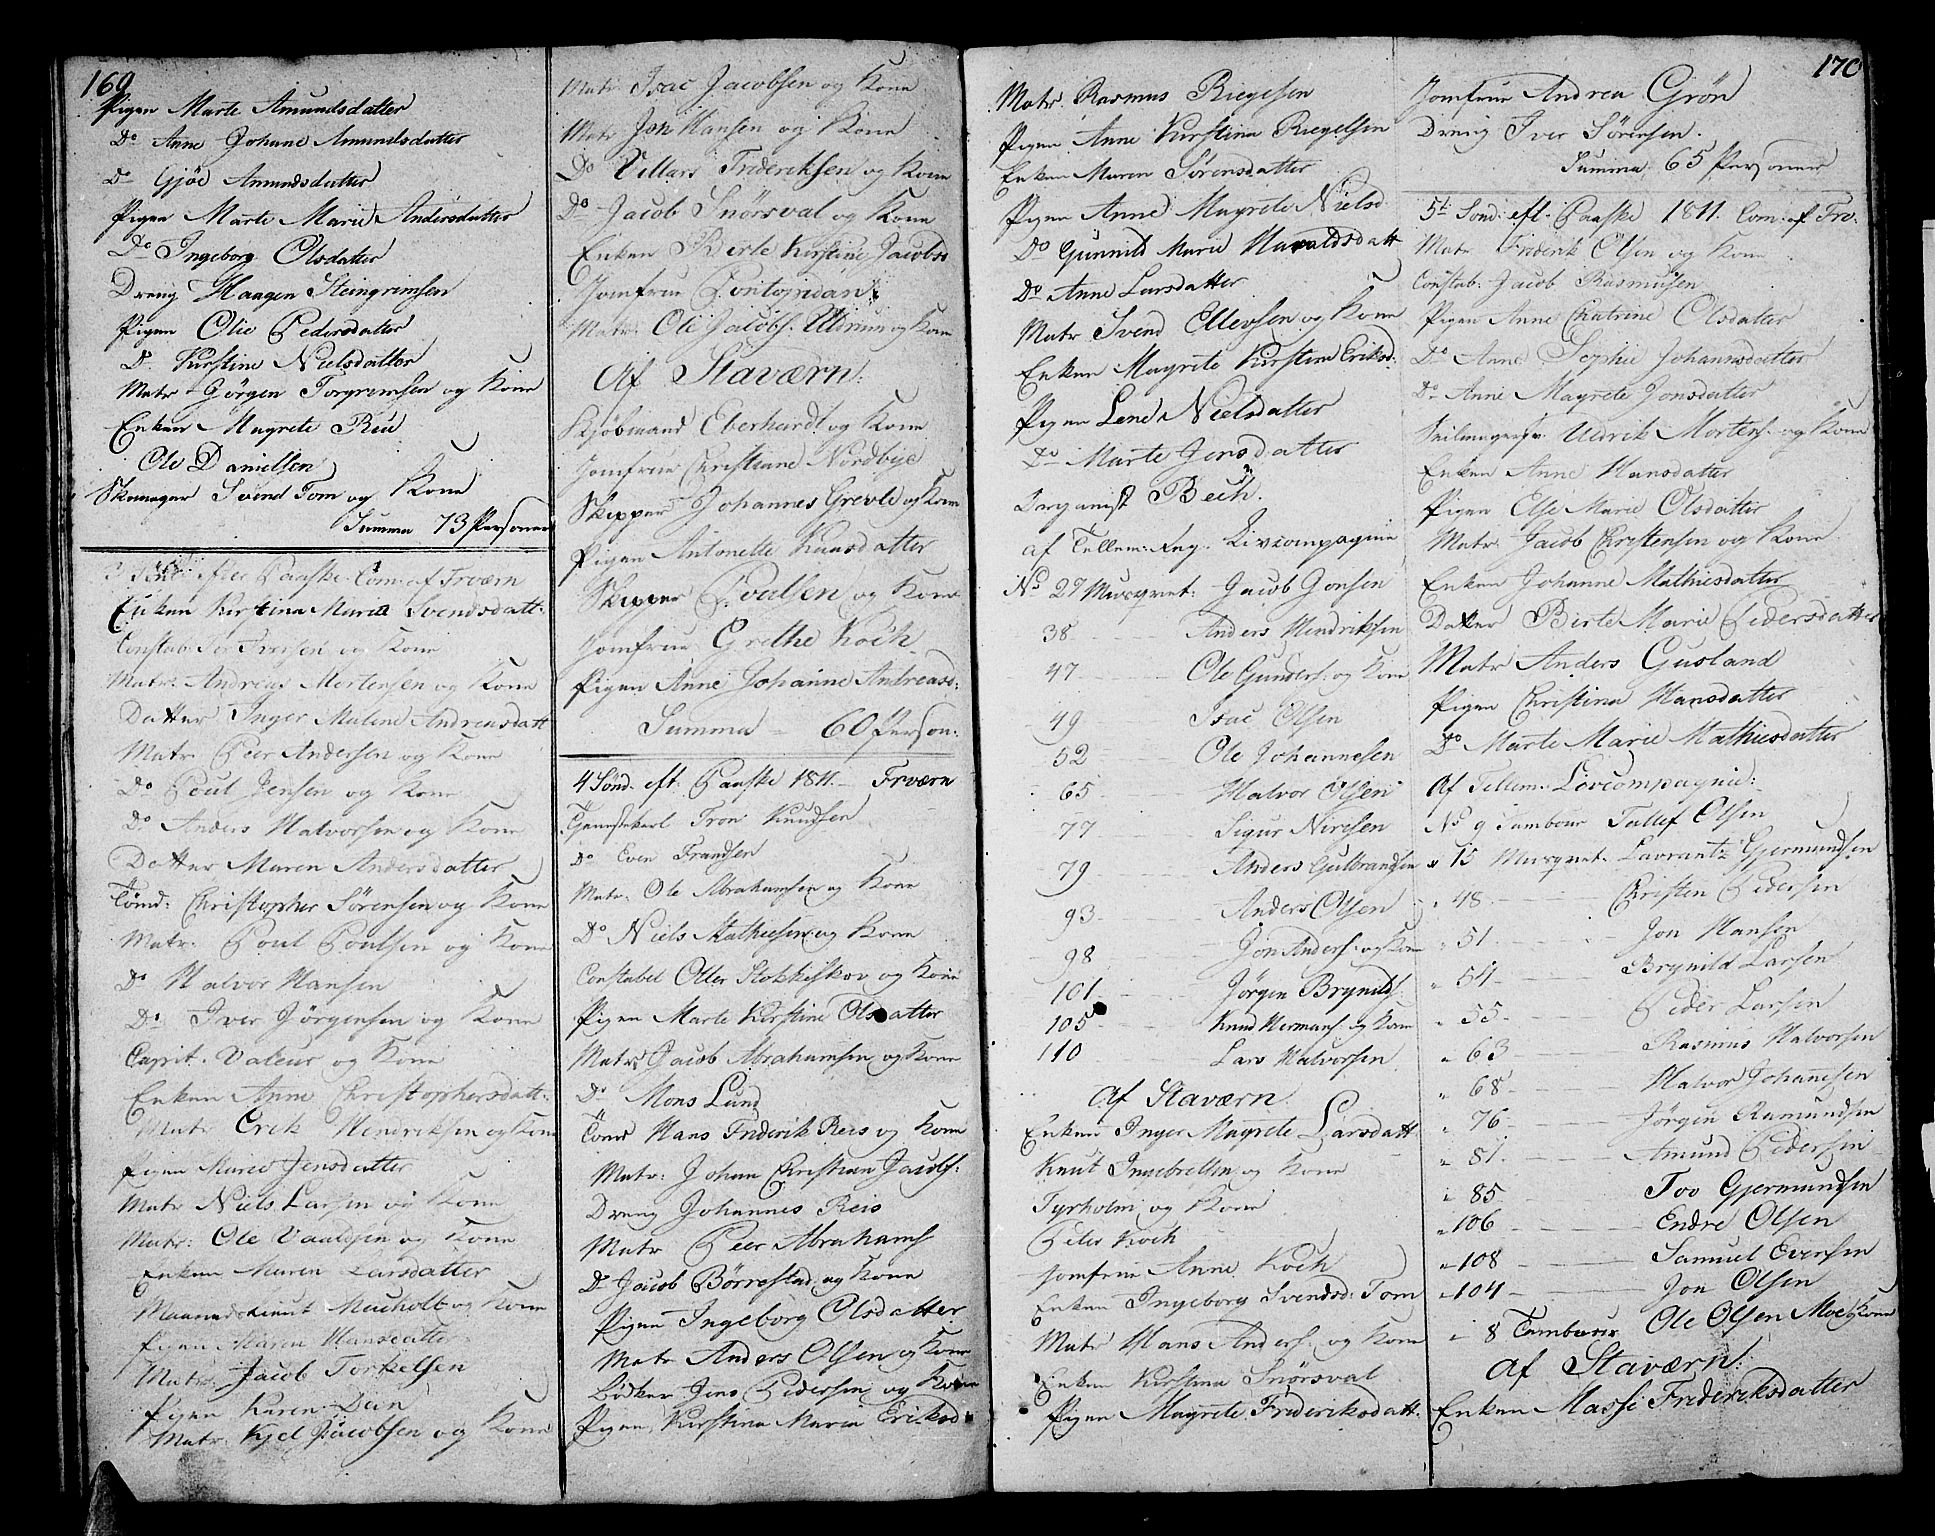 169
Pigen Marte Amundsdatter
Do Anne Johane Amundsdatter
Do Gjøe Amundsdatter
Pigen Marte Marie Andersdatter
Do Ingeborg Olsdatter
Dreng Haagen Steingrimsen
Pigen Olie Pedersdatter
D. Kirstine Nielsdatter
Matr Jørgen Torgremsen og Kone
Enken Magrete Reu
Ole Danielsen
Skomager Svend Tom og Kone
Summa 73 Personer
3 Sønd efter Paaske. Com: af Frværn
Enken Kirstina Maria Svendsdatt:
Constab: Iver Iversen og Kone
Matr: Andreas Mortensen og Kone
Datter Inger Malene Andreasdatt
Matr Peer Andersen og Kone
Do Poul Jensen og Kone
Do Anders Halvorsen og Kone
Datter Maren Andersdatter
Tømd: Christopher Sørensen og Kone
Matr: Poul Poulsen og Kone
Do Halvor Hansen
Do Iver Jørgensen og Kone
Capit. Valeur og Kone
Enken Anne Christophersdatt:
Matr Erik Hendriksen og Kone
Pigen Maren Jensdatter
Matr Niels Larsen og Kone
Matr: Ole Vauldsen og Kone
Enken Maren Larsdatter
Maaneds Lieut Mucholt og Kone
Pigen Karen Hansdatter
Matr: Jacob Torkelsen
Pigen Karen Dun
Matr: Kjel Jacobsen og Kone
Matr Isac Jacobsen og Kone
Matr Joh Hansen og Kone
Do Villars Frideriksen og Kone
Do Jacob Snørsval og Kone
Enken Berte Kirstine Jacobsd
Jomfrue Pontopidan
Matr: Ole Jacobs. Ulerum og Kone
Af Staværn:
Kjøbmand Eberhardt og Kone
Jomfrue Christiane Nordbye
Skipper Johannes Grevle og Kone
Pigen Antonette Knusdatter
Skipper Poulsen og Kone
Jomfrue Grethe Koch
Pigen Anne Johanne Andreasd:
Summa - 60 Person:
4 Sønd. eft: Paaske 1811. Frværn
Tjenestekarl Tron Knudsen
Do Even Frandsen
Matr: Ole Abrahamsen og Kone
Do Niels Mathiesen og Kone
Constabel Oller Stokkeskov og Kone
Pigen Marte Kirstine Olsdatter
Matr Jacob Abrahamsen og Kone
Do Mons Lund
Tømd Hans Friderik Reis og Kone
Matr: Johan Christian Jacobs:
Dreng Johannes Reis
Matr Peer Abrahams
Do Jacob Børrestad og Kone
Pigen Ingeborg Olsdatter
Matr Anders Olsen og Kone
Bødker Jens Pedersen og Kone
Pigen Kirstina Maria Eriksd
170
Matr Rasmus Riegelsen
Pigen Anne Kirstina Riegelsen
Enken Maren Sørensdatter
Pigen Anne Magrete Nielsd
Do Gunnild Marie Haraldsdatt
Do Anne Larsdatter
Matr Svend Ellevsen og Kone
Enken Magrete Kirstina Eriksd:
Pigen Lene Nielsdatter
Do Marte Jensdatter
Organist Bech.
af Tellem: Reg. Livcompagnie
No 27 Musqvet: Jacob Jonsen
38 Anders Hendriksen
47 Ole Gunders: og Kone
49 Isac Olsen
52 Ole Johannesen
65 Halvor Olsen
77 Sigur Niresen
79 Anders Gulbrandsen
93 Anders Olsen
98 Jon Anders: og Kone
101 Jørgen Brynilds
105 Knud Hermans og Kone
110 Lars Halvorsen
Af Staværn.
Enken Inger Magrete Larsdatt
Knut Ingebretsen og Kone
Tyrholm og Kone
Peter Koch
Jomfrue Anne Koch
Enken Ingeborg Svendsd: Tom
Matr Hans Anders: og Kone
Enken Kirstina Snørsval
Pigen Magrete Frideriksdatt.
Jomfrue Andrea Grøn
Dreng Iver Sørensen.
Summa 65 Personer
5t Sønd. eft. Paaske 1811. Com. af Fr.
Matr Friderik Olsen og Kone
Constab: Jacob Rasmusen
Pigen Anne Chatrine Olsdatter
Do Anne Sophie Johannsdatter
Do Anne Magrete Jonsdatter
Seilmagersv. Uldrik Mortens. og Kone
Enken Anne Hansdatter
Pigen Else Marie Olsdatter
Matr: Jacob Christensen og Kone
Enken Johanne Mathiesdatter
Datter Birte Marie Pedersdatter
Matr Anders Gusland
Pigen Christina Hansdatter
Do Marte Marie Mathiesdatter
Af Tellem. Livcompagnie:
No 9 Tambour Tallef Olsen
15 Musqvet. Lavrantz Gjermundsen
48 Christen Pedersen
51 Jon Hansen
54 Brynild Larsen
55 Peder Larsen
63 Rasmus Halvorsen
68 Halvor Johannesen
76 Jørgen Ramundsen
81 Amund Pedersen
85 Tov Gjermundsen
106 Endre Olsen
108 Samuel Eversen
104 Jon Olsen
8 Tambour Ole Olsen Moe og Kone
Af Staværn:
Enken Masse Frideriksdatter